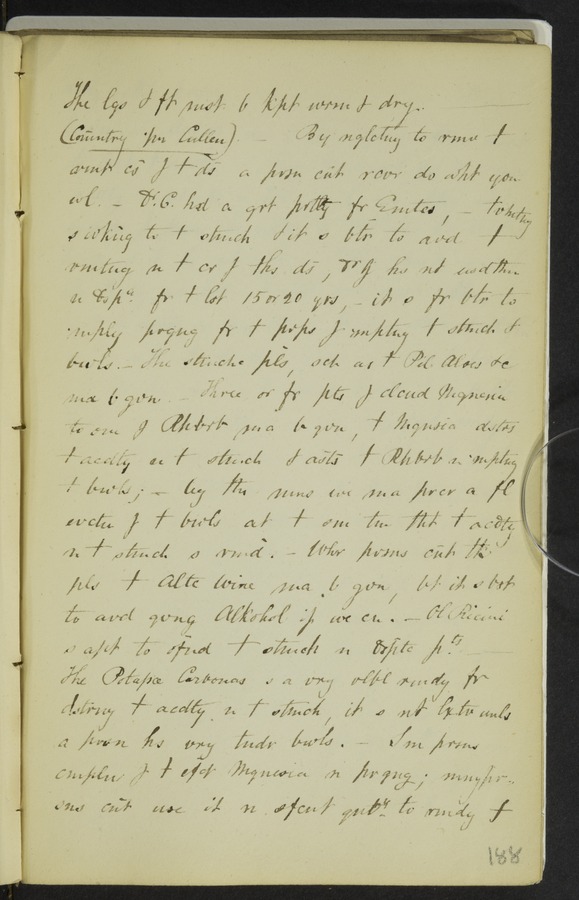 The lgs & ft mst b kpt wrm & dry.
(Country Cullen) — By nglctng to rmv t
a prsn cnt rcvr do wht you
wl. — Dr. C. hd a grt prtty fr Emtcs, —
t stmch & it s btr to avd t
vmtng n t cr f ths ds, hs nt usd thm
n fr t lst 15 or 20 yrs, — it s fr btr to
smply prgng fr t prps f mptng t stmch &
bwls. — The stmchc pls, sch as t Pil Aloes &c
ma b gvn. — Three or fr pts f clcnd Mgnesia
to one f Rhbrb ma b gvn, t Mgnsia dstrs
t acdty n t stmch & assts t Rhbrb n mptng
t bwls; — by ths mns we ma prcr a fl
evctn f t bwls at t sm tm tht t acdty
n t stmch s rmvd. — Whr prsns cnt tk
pls t Altc Wine ma b gvn, bt it s bst
to avd gvng Alkohol if we cn. — Ol Ricini
s apt to ofnd t stmch n pts
The Potassæ Carbonas s a vry vlbl rmdy fr
dstrng t acdty n t stmch, it s nt lxtv unls
a prsn hs vry tndr bwls. — Sm prsns
cmpln f t efct Mgnesia n prgng; mny pr-
sns cnt use it n sfcnt to rmdy t
188